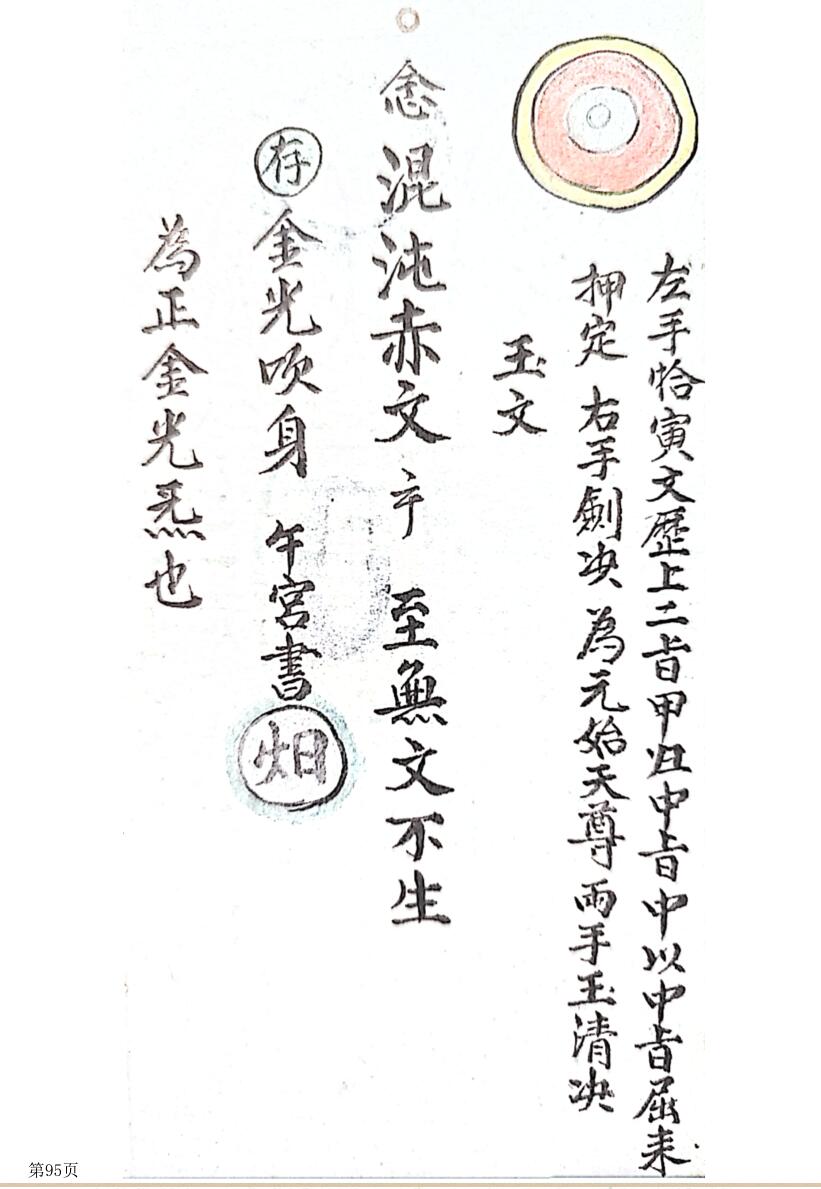 左手恰寅文歷上二旨甲㱕中旨中以中旨屈来
押定 右手劍决 為元始天尊兩手玉清决
玉文
念混沌赤文 至無文不生
存金光吹身 午宮書 㶰
為正金光炁也
第95页